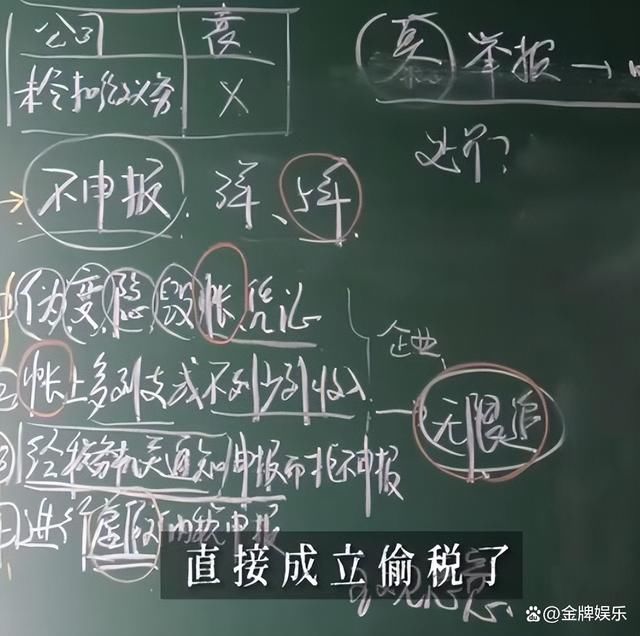 公司
未尽扣缴义务 X
举报 →
处罚?
不申报 3年、5年
伪变隐毁帐凭证
②帐上多列支或不列少列收入
企业
无限追
经税务机关通知申报而拒不申报
进行虚假纳税申报
直接成立偷税了
金牌娱乐